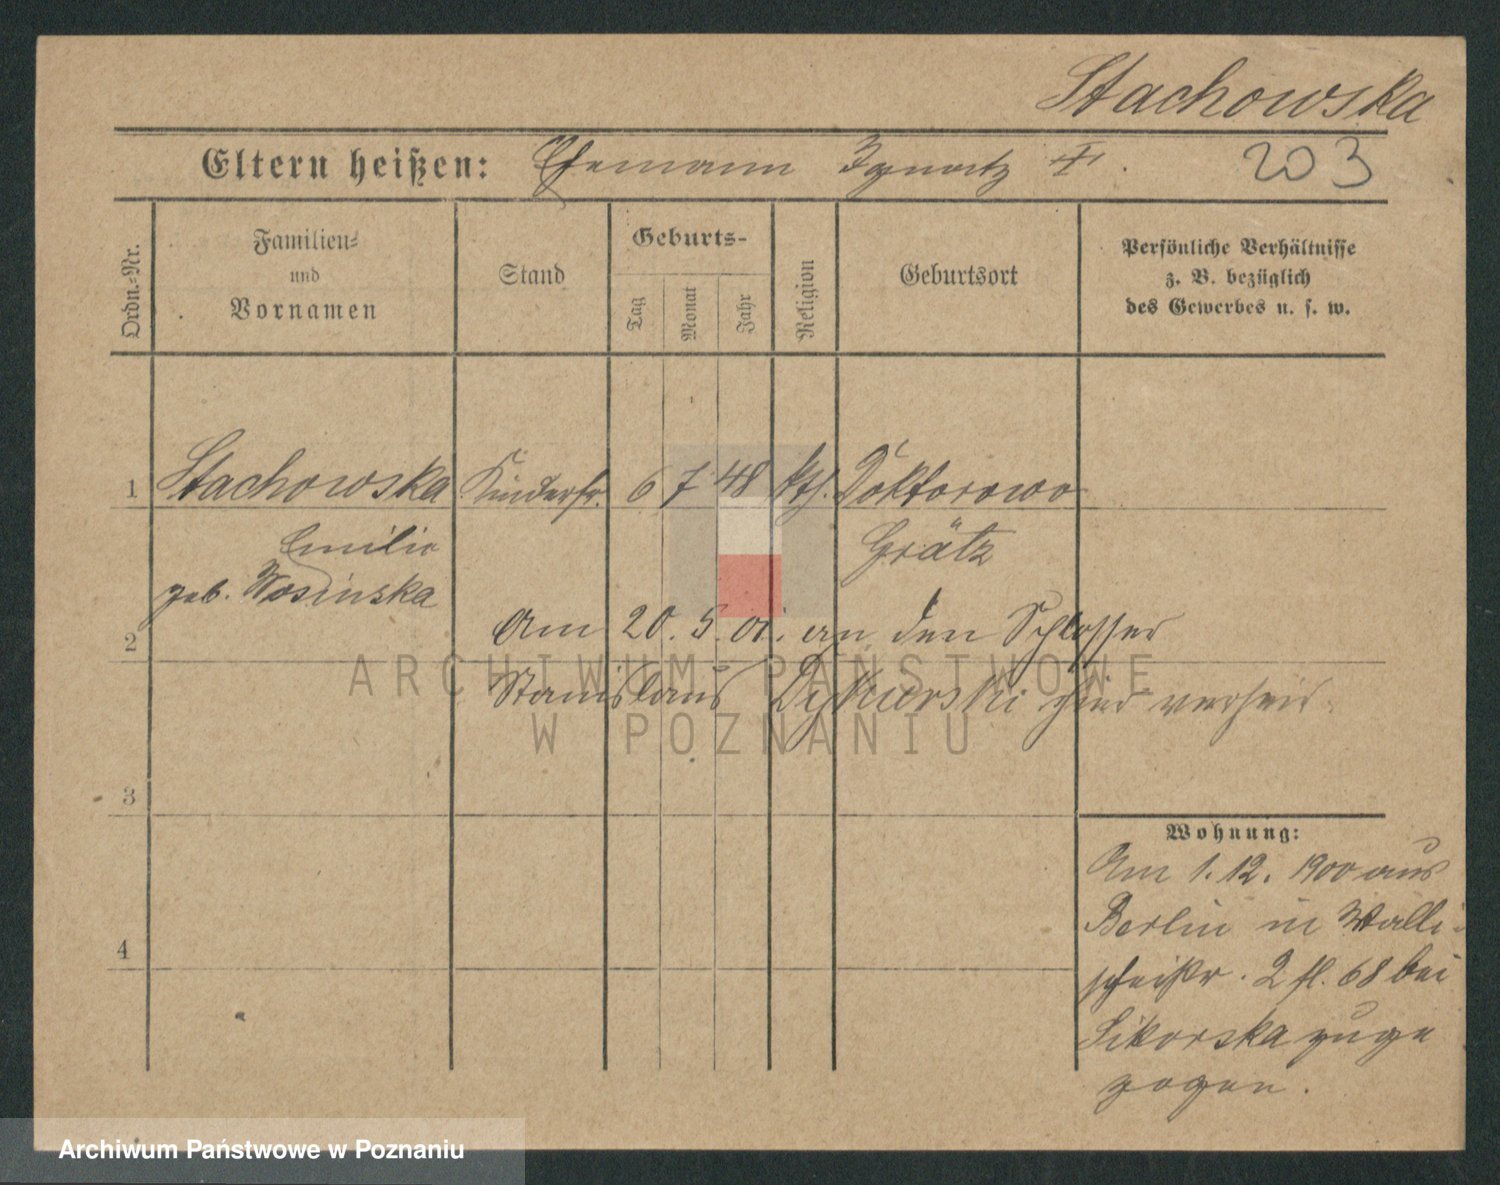 Stachowska
Eltern heißen: Ehemann Ignatz †. 203
Ordn.-Nr.
Familien-
und
Vornamen
Stand
Geburts-
Tag
Monat
Jahr
Religion
Geburtsort
Persönliche Verhältnisse
z. B. bezüglich
des Gewerbes u. s. w.
1 Stachowska Kinderfr. 6 7 48 kth. Doktorowo
Emilie Grätz
geb. Wosinska
2 Am 20. 5. 01. an den Schlosser
Stanislaus Dykierski hier verheir
ARCHIWUM PAŃSTWOWE
W POZNANIU
3
Wohnung:
Am 1. 12. 1900 aus
Berlin in Walli-
4
scheistr. 2 fl. 68 bei
Sikorska zuge
zogen.
Archiwum Państwowe w Poznaniu